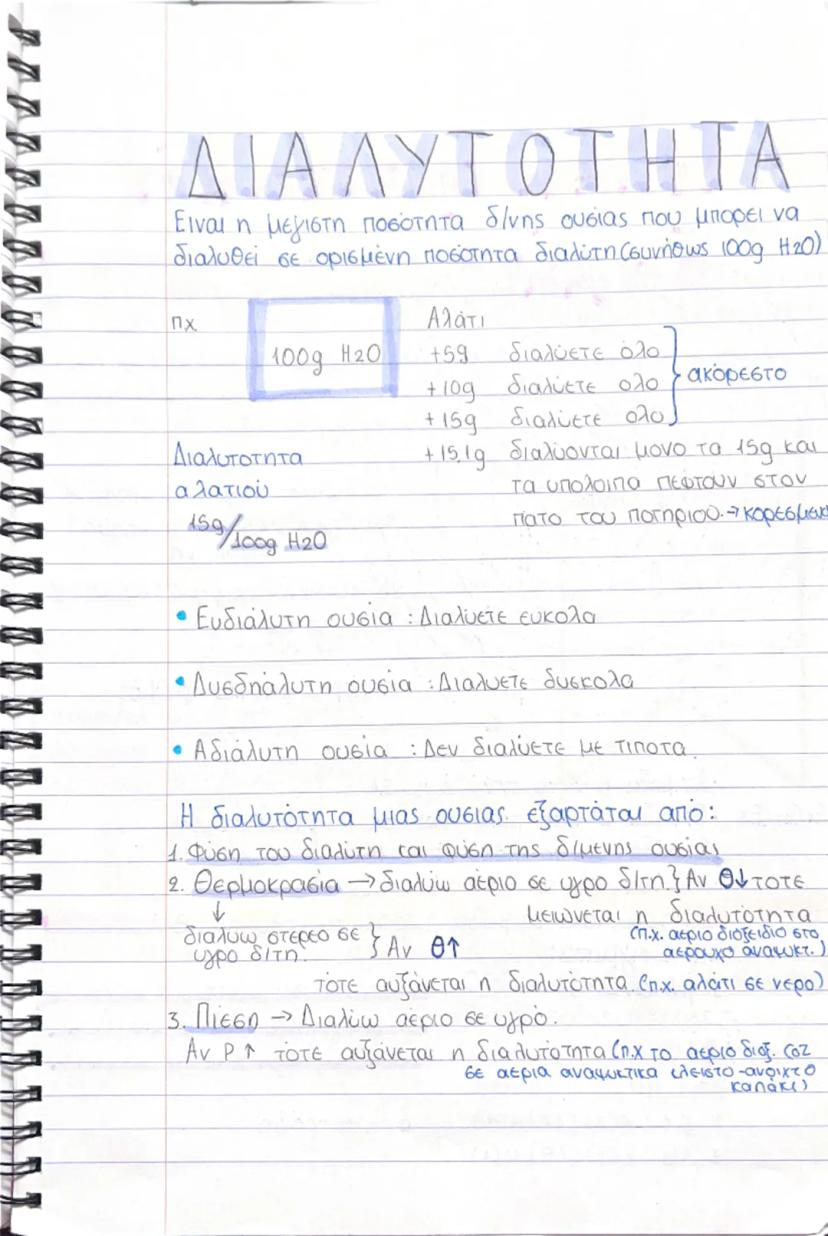 ΔΙΑΛΥΤΟΤΗΤΑ
Ειναι η μεγιστη ποσότητα δ/νης ουσίας που μπορεί να
διαλυθεί σε ορισμένη ποσότητα διαλύτη (συνήθως 100g H2O)
πχ
100g H2O
Αλάτι
+5g διαλύετε όλο
+10g διαλύετε ολο
+15g διαλύετε ολο
ακόρεστο
+15,1g διαλύονται μονο τα 15g και
τα υπολοιπα πέφτουν στον
πατο του ποτηριού. →κορεσμεν
Διαλυτοτητα
αλατιού
15g/100g H2O
• Ευδιάλυτη ουσία : Διαλύετε ευκολα
• Δυσδηάλυτη ουσία : Διαλυετε δυσκολα
• Αδιάλυτη ουσία : Δεν διαλύετε με τιποτα
Η διαλυτότητα μιας ουσιας εξαρτάται από:
1. Φύση του διαλύτη και φύση της δ/μενης ουσίας
2. Θερμοκρασία → διαλύω αέριο σε υγρο δ/τη } Αν θ↓ τοτε
μειώνεται η διαλυτότητα
(π.χ. αέριο διόξειδιο στο
αεριουχο αναψυκτ.)
↓
διαλυω στερεο σε
υγρο δ/τη. } Αν θ↑
τότε αυξάνεται η διαλυτότητα (π.χ. αλάτι σε νερο)
3. Πίεση → Διαλύω αέριο σε υγρό.
Αν P ↑ τότε αυξάνεται η διαλυτότητα (π.χ το αέριο διοξ. CO2
σε αέρια αναψυκτικα κλειστο-ανοιχτο
καπάκι)